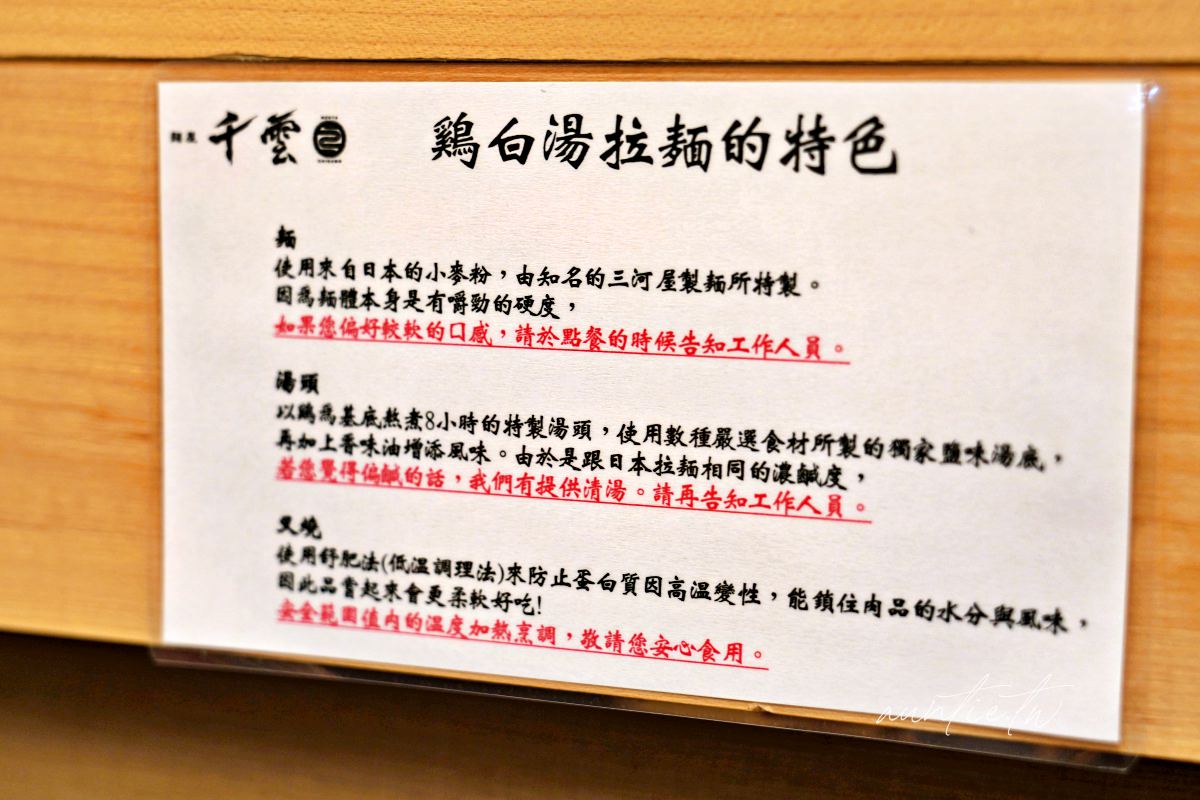 麵屋 千雲 鶏白湯拉麵的特色
麵
使用來自日本的小麥粉，由知名的三河屋製麵所特製。
因為麵體本身是有嚼勁的硬度，
如果您偏好較軟的口感，請於點餐的時候告知工作人員。
湯頭
以鷄為基底熬煮8小時的特製湯頭，使用數種嚴選食材所製的獨家鹽味湯底，
再加上香味油增添風味。由於是跟日本拉麵相同的濃鹹度，
若您覺得偏鹹的話，我們有提供清湯。請再告知工作人員。
叉燒
使用舒肥法(低溫調理法)來防止蛋白質因高溫變性，能鎖住肉品的水分與風味，
因此品嘗起來會更柔軟好吃!
安全範圍值內的溫度加熱烹調，敬請您安心食用。
auntie.tw